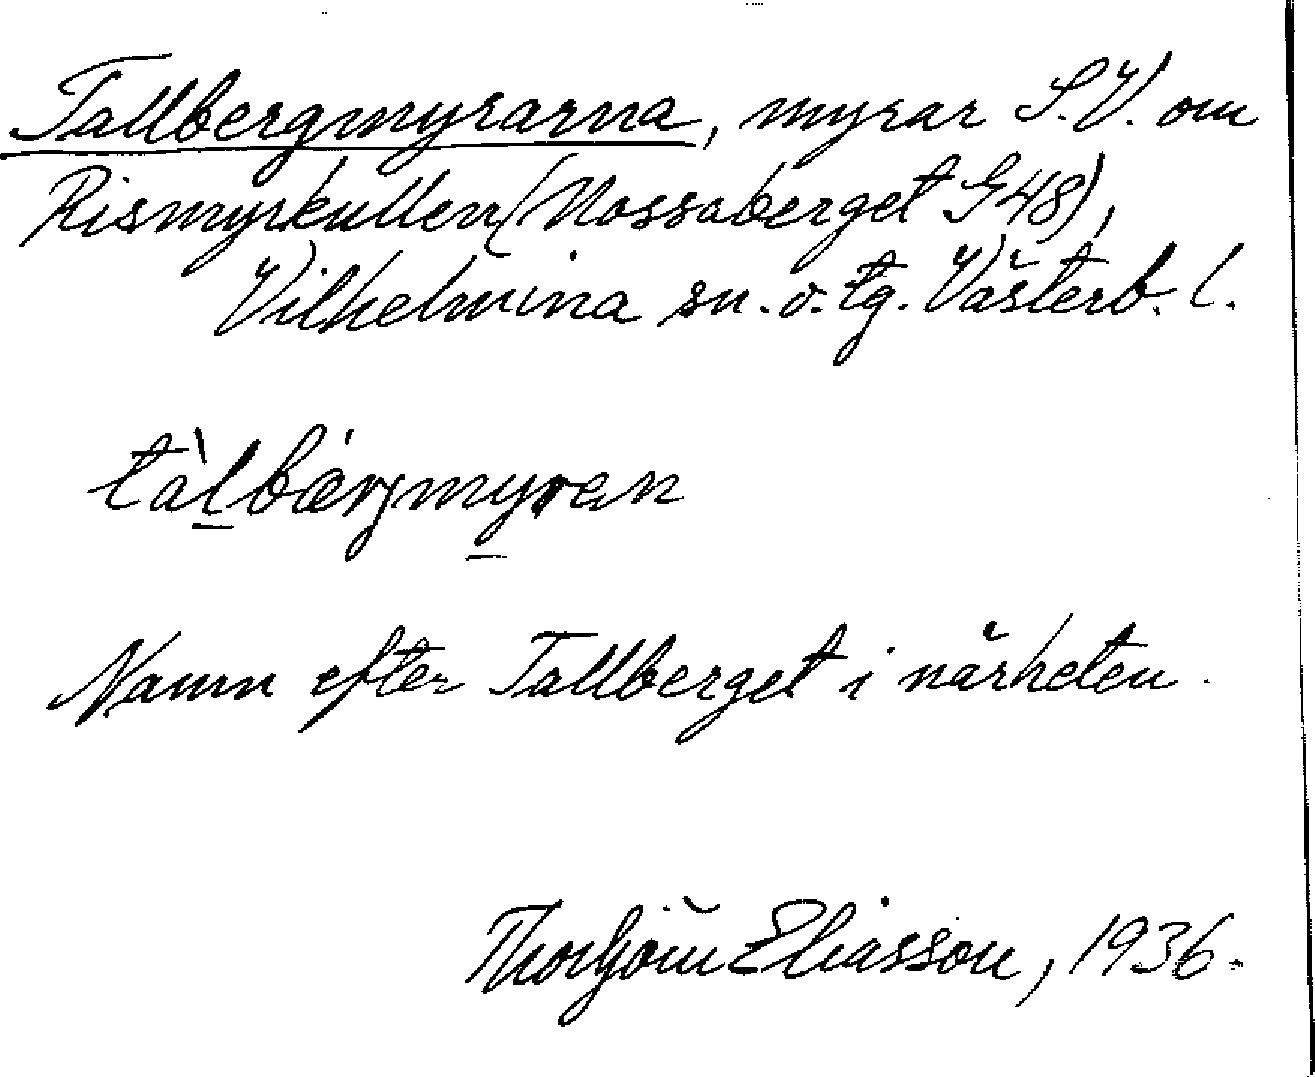 Tallbergmyrarna, myrar S.V. om
Rismyrkullen (Nossaberget G48),
Vilhelmina sn. o. tg. Västerb. l.
tàl̲bǽrgmy̲ran
Namn efter Tallberget i närheten.
Thorbjörn Eliasson, 1936.